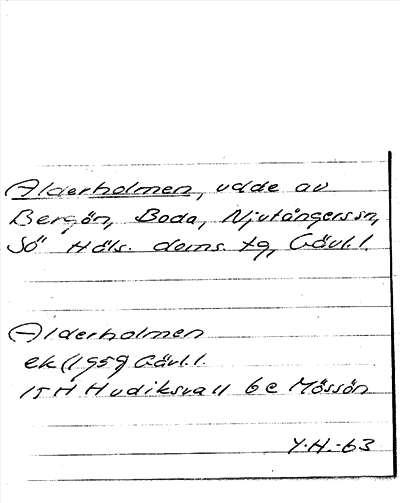 Alderholmen, udde av
Bergön, Boda, Njutångers sn,
Sö Häls. doms. tg, Gävl. l.
Alderholmen
ek (1959) Gävl. l.
15 H Hudiksvall 6e Mössön
Y.H.-63